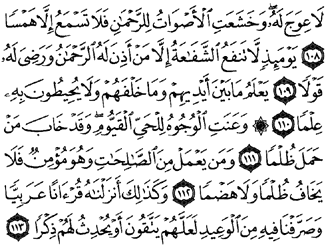 لَا عِوَجَ لَهُۥ ۖ وَخَشَعَتِ ٱلْأَصْوَاتُ لِلرَّحْمَٰنِ فَلَا تَسْمَعُ إِلَّا هَمْسًا
١٠٨ يَوْمَئِذٍ لَّا تَنفَعُ ٱلشَّفَٰعَةُ إِلَّا مَنْ أَذِنَ لَهُ ٱلرَّحْمَٰنُ وَرَضِىَ لَهُۥ
قَوْلًا ١٠٩ يَعْلَمُ مَا بَيْنَ أَيْدِيهِمْ وَمَا خَلْفَهُمْ وَلَا يُحِيطُونَ بِهِۦ
عِلْمًا ١١٠ ۞ وَعَنَتِ ٱلْوُجُوهُ لِلْحَىِّ ٱلْقَيُّومِ ۖ وَقَدْ خَابَ مَنْ
حَمَلَ ظُلْمًا ١١١ وَمَن يَعْمَلْ مِنَ ٱلصَّٰلِحَٰتِ وَهُوَ مُؤْمِنٌ فَلَا
يَخَافُ ظُلْمًا وَلَا هَضْمًا ١١٢ وَكَذَٰلِكَ أَنزَلْنَٰهُ قُرْءَانًا عَرَبِيًّا
وَصَرَّفْنَا فِيهِ مِنَ ٱلْوَعِيدِ لَعَلَّهُمْ يَتَّقُونَ أَوْ يُحْدِثُ لَهُمْ ذِكْرًا ١١٣